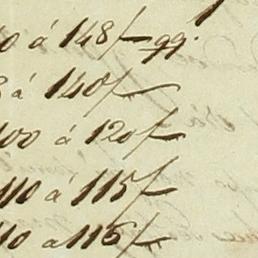 0 á 148f gg.
8 á 140f
100 á 120f
110 á 115f
110 a 116f